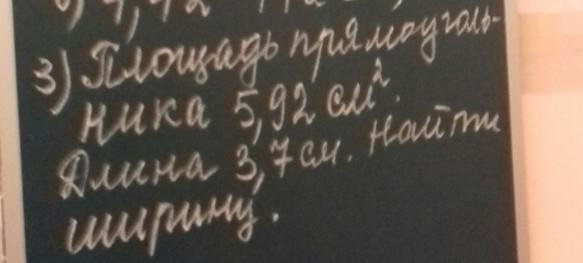 3) Площадь прямоуголь-
ника 5,92 см².
Длина 3,7 см. Найти
ширину.